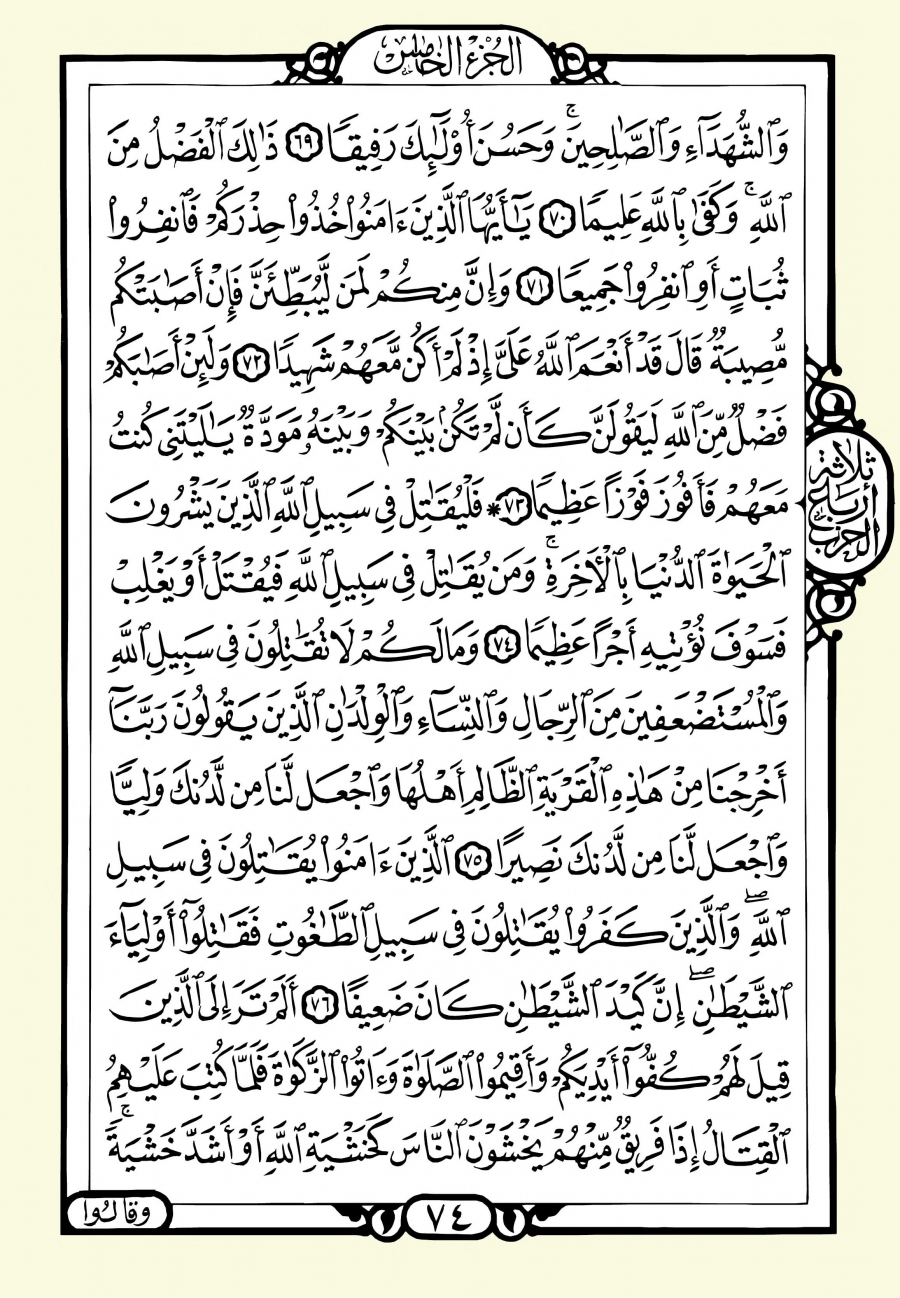 الجزء الخامس
وَٱلشُّهَدَآءِ وَٱلصَّٰلِحِينَۚ وَحَسُنَ أُوْلَٰٓئِكَ رَفِيقًا ٦٩ ذَٰلِكَ ٱلْفَضْلُ مِنَ
ٱللَّهِۚ وَكَفَىٰ بِٱللَّهِ عَلِيمًا ٧٠ يَٰٓأَيُّهَا ٱلَّذِينَ ءَامَنُوا۟ خُذُوا۟ حِذْرَكُمْ فَٱنفِرُوا۟
ثُبَاتٍ أَوِ ٱنفِرُوا۟ جَمِيعًا ٧١ وَإِنَّ مِنكُمْ لَمَن لَّيُبَطِّئَنَّ فَإِنْ أَصَٰبَتْكُم
مُّصِيبَةٌ قَالَ قَدْ أَنْعَمَ ٱللَّهُ عَلَىَّ إِذْ لَمْ أَكُن مَّعَهُمْ شَهِيدًا ٧٢ وَلَئِنْ أَصَٰبَكُمْ
فَضْلٌ مِّنَ ٱللَّهِ لَيَقُولَنَّ كَأَن لَّمْ تَكُنۢ بَيْنَكُمْ وَبَيْنَهُۥ مَوَدَّةٌ يَٰلَيْتَنِى كُنتُ
مَعَهُمْ فَأَفُوزَ فَوْزًا عَظِيمًا ٧٣ * فَلْيُقَٰتِلْ فِى سَبِيلِ ٱللَّهِ ٱلَّذِينَ يَشْرُونَ
ٱلْحَيَوٰةَ ٱلدُّنْيَا بِٱلْءَاخِرَةِۚ وَمَن يُقَٰتِلْ فِى سَبِيلِ ٱللَّهِ فَيُقْتَلْ أَوْ يَغْلِبْ
فَسَوْفَ نُؤْتِيهِ أَجْرًا عَظِيمًا ٧٤ وَمَا لَكُمْ لَا تُقَٰتِلُونَ فِى سَبِيلِ ٱللَّهِ
وَٱلْمُسْتَضْعَفِينَ مِنَ ٱلرِّجَالِ وَٱلنِّسَآءِ وَٱلْوِلْدَٰنِ ٱلَّذِينَ يَقُولُونَ رَبَّنَآ
أَخْرِجْنَا مِنْ هَٰذِهِ ٱلْقَرْيَةِ ٱلظَّالِمِ أَهْلُهَا وَٱجْعَل لَّنَا مِن لَّدُنكَ وَلِيًّا
وَٱجْعَل لَّنَا مِن لَّدُنكَ نَصِيرًا ٧٥ ٱلَّذِينَ ءَامَنُوا۟ يُقَٰتِلُونَ فِى سَبِيلِ
ٱللَّهِۖ وَٱلَّذِينَ كَفَرُوا۟ يُقَٰتِلُونَ فِى سَبِيلِ ٱلطَّٰغُوتِ فَقَٰتِلُوٓا۟ أَوْلِيَآءَ
ٱلشَّيْطَٰنِۖ إِنَّ كَيْدَ ٱلشَّيْطَٰنِ كَانَ ضَعِيفًا ٧٦ أَلَمْ تَرَ إِلَى ٱلَّذِينَ
قِيلَ لَهُمْ كُفُّوٓا۟ أَيْدِيَكُمْ وَأَقِيمُوا۟ ٱلصَّلَوٰةَ وَءَاتُوا۟ ٱلزَّكَوٰةَ فَلَمَّا كُتِبَ عَلَيْهِمُ
ٱلْقِتَالُ إِذَا فَرِيقٌ مِّنْهُمْ يَخْشَوْنَ ٱلنَّاسَ كَخَشْيَةِ ٱللَّهِ أَوْ أَشَدَّ خَشْيَةًۚ
ثلاثة
أرباع
الحزب
وقالوا
٧٤